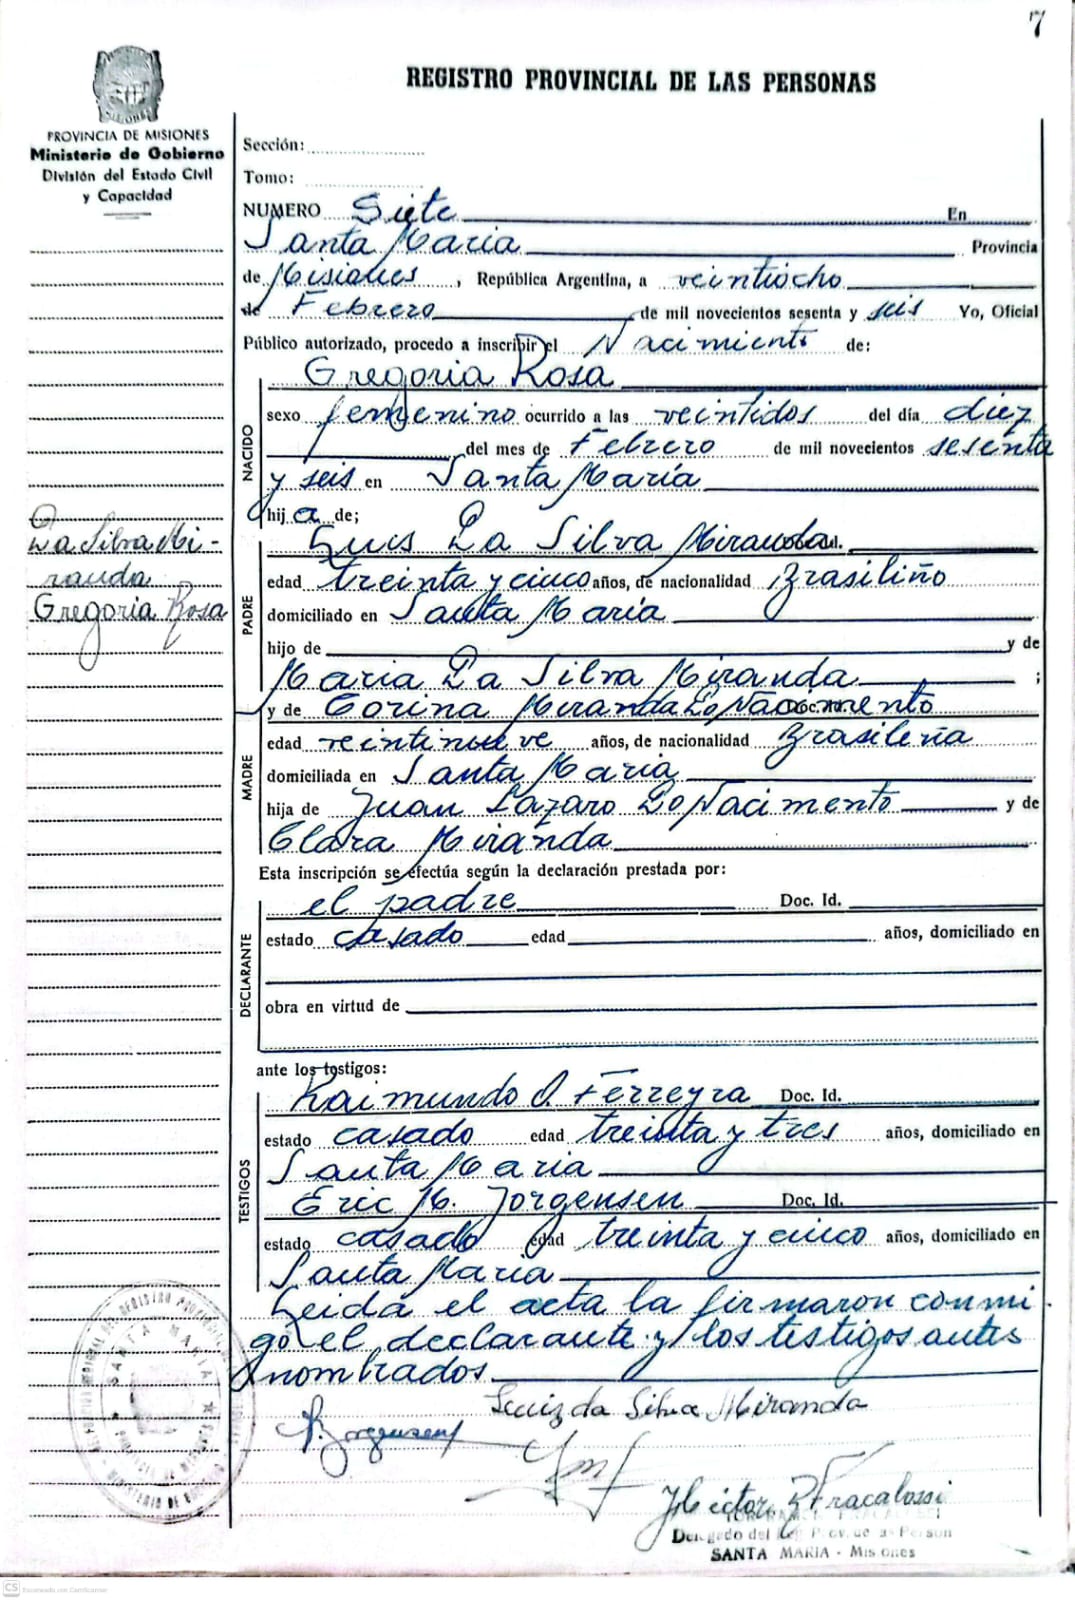 7
REGISTRO PROVINCIAL DE LAS PERSONAS
PROVINCIA DE MISIONES
Ministerio de Gobierno
División del Estado Civil
y Capacidad
Sección:
Tomo:
NUMERO Siete En
Santa Maria Provincia
de Misiones, República Argentina, a veintiocho
de Febrero de mil novecientos sesenta y seis Yo, Oficial
Público autorizado, procedo a inscribir el Nacimiento de:
Gregoria Rosa
NACIDO
sexo femenino ocurrido a las veintidos del día diez
del mes de Febrero de mil novecientos sesenta
y seis en Santa María
hija de;
Da Silva Mi-
randa
Gregoria Rosa
PADRE
Luis Da Silva Miranda
edad treinta y cinco años, de nacionalidad Brasiliño
domiciliado en Santa María
hijo de y de
Maria Da Silva Miranda ;
MADRE
y de Corina Miranda Do Nacimento
edad veintinueve años, de nacionalidad Brasileña
domiciliada en Santa Maria
hija de Juan Lazaro Do Nacimento y de
Clara Miranda
Esta inscripción se efectúa según la declaración prestada por:
DECLARANTE
el padre Doc. Id.
estado casado edad años, domiciliado en
obra en virtud de
ante los testigos:
TESTIGOS
Raimundo O. Ferreyra Doc. Id.
estado casado edad treinta y tres años, domiciliado en
Santa Maria
Eric M. Jorgensen Doc. Id.
estado casado edad treinta y cinco años, domiciliado en
Santa Maria
Leida el acta la firmaron conmi-
go el declarante y los testigos antes
nombrados.
Luiz da Silva Miranda
Hector R Fracalossi
Delegado del Reg. Prov. de las Person
SANTA MARIA - Misiones
SANTA MARIA
CS Escaneado con CamScanner